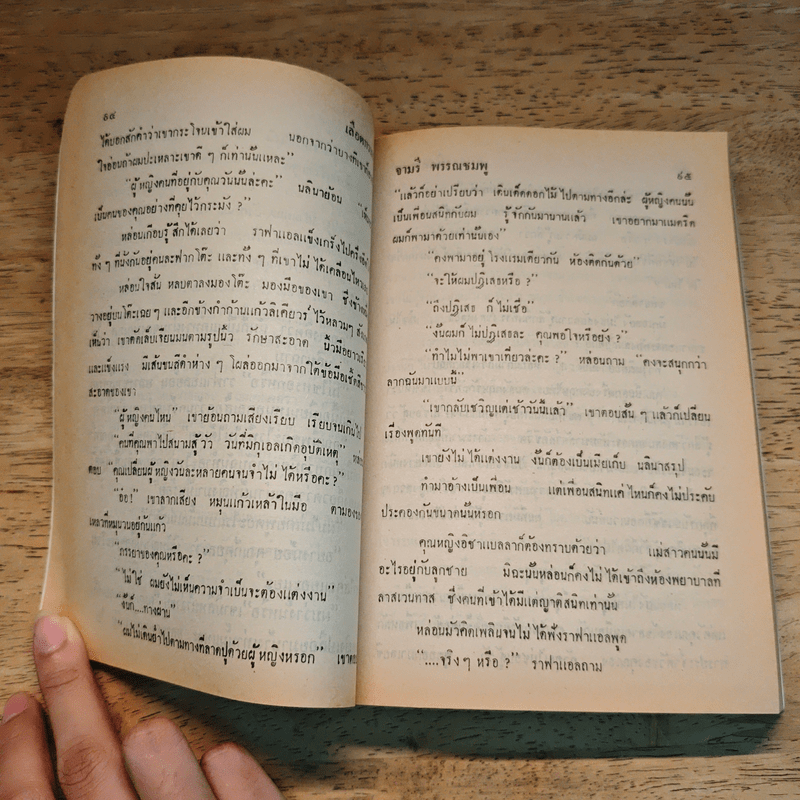 ๑๔
เลือด
ได้บอกสักคำว่าเขากระโจนเข้าใส่ผม นอกจากว่าบางทีเขา
ใจอ่อนถ้าผมปะเหลาะเขาดี ๆ ก็เท่านั้นแหละ"
"ผู้หญิงคนที่อยู่กับคุณวันนั้นล่ะคะ" นลินาย้อน
เป็นคนของคุณอย่างที่คุยไว้กระมัง ?"
หล่อนเกือบรู้สึกได้เลยว่า ราฟาแอลแข็งเกร็งไปครึ่ง
ทั้ง ๆ ที่นั่งกันอยู่คนละฟากโต๊ะ และทั้ง ๆ ที่เขาไม่ได้เคลื่อนไหวเลย
หล่อนใจสั่น หลบตาลงมองโต๊ะ มองมือของเขา ซึ่งข้างหนึ่ง
วางอยู่บนโต๊ะเฉย ๆ และอีกข้างกำก้านแก้วลิเคียวร์ไว้หลวมๆ
เห็นว่า เขาตัดเล็บเรียบมนตามรูปนิ้ว รักษาสะอาด นิ้วมือยาวเรียว
และแข็งแรง มีเส้นขนสีดำห่าง ๆ โผล่ออกมาจากใต้ข้อมือเชิ้ต
สะอาดของเขา
"ผู้หญิงคนไหน" เขาย้อนถามเสียงเรียบ เรียบจนเกินไป
"คนที่คุณพาไปสนามสู้วัว วันที่มิกูเอลเกิดอุบัติเหตุ"
ตอบ "คุณเปลี่ยนผู้หญิงวันละหลายคนจนจำไม่ได้หรือคะ ?"
"อ๋อ!" เขาลากเสียง หมุนแก้วเหล้าในมือ ตามอง
เหลวที่หมุนวนอยู่ก้นแก้ว
"ภรรยาของคุณหรือคะ ?"
"ไม่ใช่ ผมยังไม่เห็นความจำเป็นจะต้องแต่งงาน"
"งั้นก็....ทางผ่าน"
"ผมไม่เดินย่ำไปตามทางที่ลาดปูด้วยผู้หญิงหรอก" เขา
จามรี พรรณชมพู
๑๕
"แล้วก็อย่าเปรียบว่า เดินเด็ดดอกไม้ไปตามทางอีกล่ะ ผู้หญิงคนนั้น
เป็นเพื่อนสนิทกับผม รู้จักกันมานานแล้ว เขาอยากมาแมดริด
ผมก็พามาด้วยเท่านั้นเอง"
"คงพามาอยู่โรงแรมเดียวกัน ห้องติดกันด้วย"
"จะให้ผมปฏิเสธหรือ ?"
"ถึงปฏิเสธ ก็ไม่เชื่อ"
"งั้นผมก็ไม่ปฏิเสธละ คุณพอใจหรือยัง ?"
"ทำไมไม่พาเขาเที่ยวล่ะคะ ?" หล่อนถาม "คงจะสนุกกว่า
ลากฉันมาแบบนี้"
"เขากลับเซวิญแต่เช้าวันนี้แล้ว" เขาตอบสั้น ๆ แล้วก็เปลี่ยน
เรื่องพูดทันที
เขายังไม่ได้แต่งงาน งั้นก็ต้องเป็นเมียเก็บ นลินาสรุป
ทำมาอ้างเป็นเพื่อน แต่เพื่อนสนิทแค่ไหนก็คงไม่ประคับ
ประคองกันขนาดนั้นหรอก
คุณหญิงอิซาเบลลาก็ต้องทราบด้วยว่า แม่สาวคนนั้นมี
อะไรอยู่กับลูกชาย มิฉะนั้นหล่อนก็คงไม่ได้เข้าถึงห้องพยาบาลที่
ลาสเวนทาส ซึ่งคนที่เข้าได้มีแต่ญาติสนิทเท่านั้น
หล่อนมัวคิดเพลินจนไม่ได้ฟังราฟาแอลพูด
"....จริงๆ หรือ ?" ราฟาแอลถาม